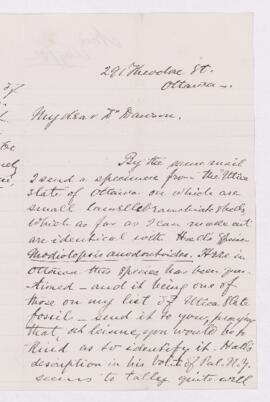 291 Theodore St.
Ottawa.
My dear Dr Dawson.
By the same mail
I send a specimen from the Utica
slate of Ottawa on which are
small lamellibranchiate shells,
which as far as I can make out
are identical with Hall's species
Modiolopsis anodontoides. Here in
Ottawa this species has been ques-
tioned — and it being one of
those on my list of Utica slate
fossils — send it to you, praying
that, at leisure, you would be so
kind as to identify it. Hall's
description in his Vol. of Pal. N.Y.
seems to talley quite well